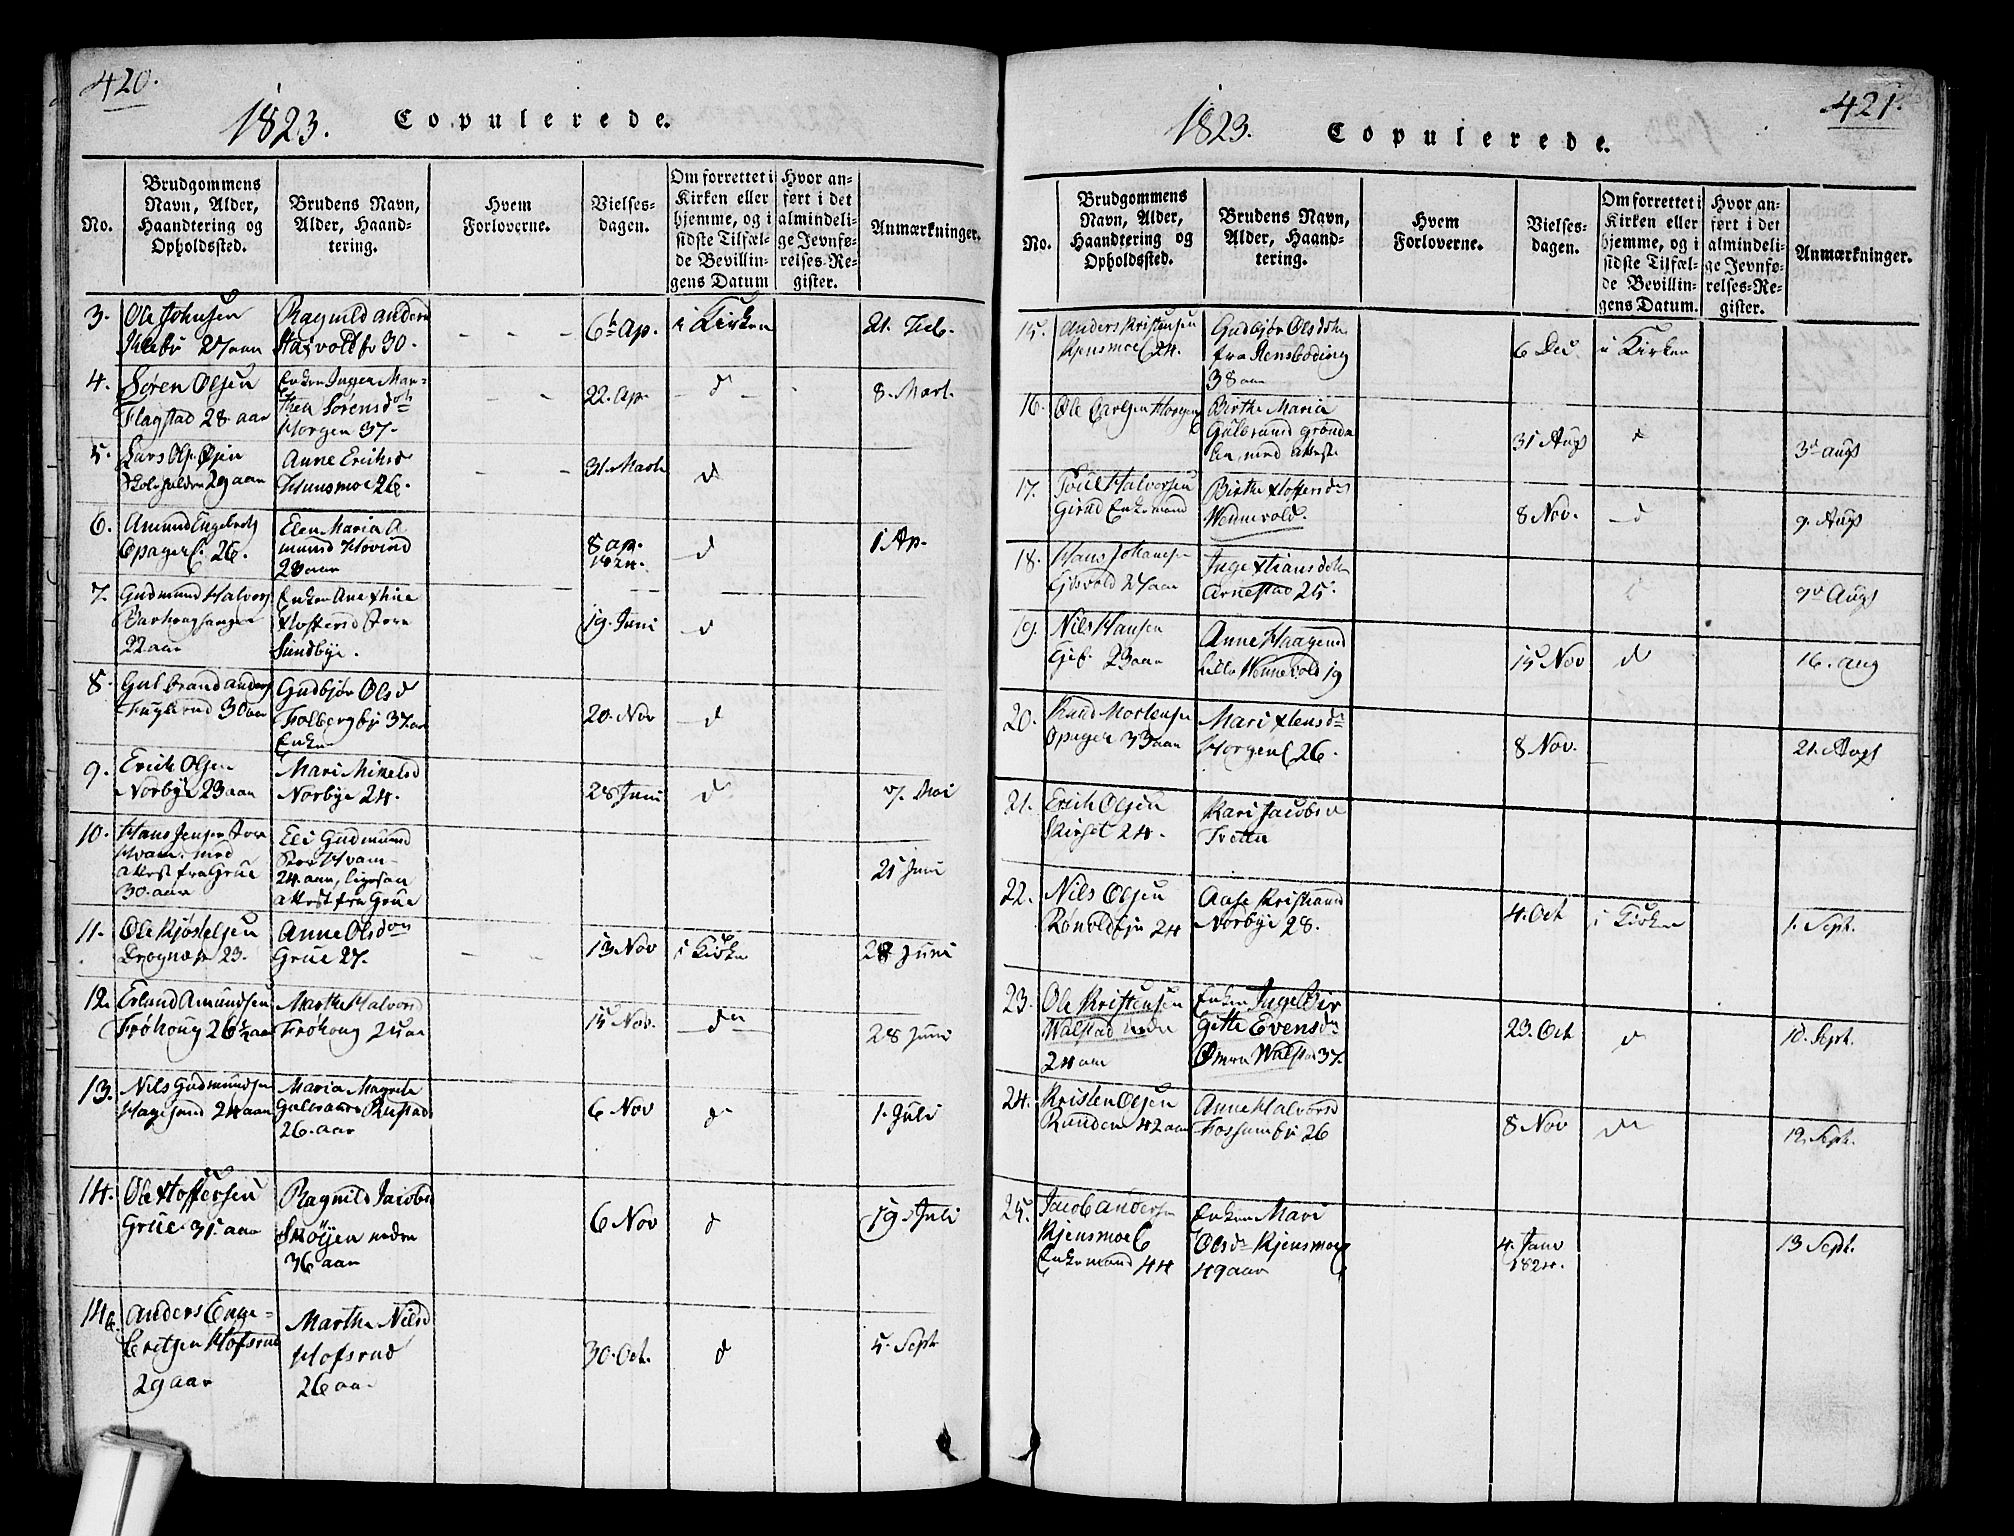 420.
1823. Copulerede.
No.
Brudgommens
Navn, Alder,
Haandtering og
Opholdssted.
Brudens Navn,
Alder, Haand-
tering.
Hvem
Forloverne.
Vielses-
dagen.
Om forrettet i
Kirken eller
hjemme, og i
sidste Tilfæl-
de Bevillin-
gens Datum
Hvor an-
ført i det
almindeli-
ge Jevnfø-
relses-Re-
gister.
Anmærkninger.
3. Ole Johnsen
27 aar
Ragnild
30.
6 Ap. i Kirken 21. Feb.
4. Søren Olsen
Flagstad 28 aar
Enken Inger Mar-
thea Sørensd
Horgen 37.
22. Ap. d 8. Marts
5. Lars
29 aar
Anne Eriksd
Huusmoe 26.
31. Marts d
6. Amund
Opager 26.
Elen Maria A
mund Hovind
28 aar
8 ap.
1824. d 1 Ap.
7. Gudmund Halvors
22 aar
Enken Ane
Sundbye.
19. Juni d
8. Gulbrand anders
Fuglerud 30 aar
Gudbjør Olsd
37 aar
Enke
20. Nov d
9. Erich Olsen
Norbye 23 aar
Mari Mikelsd
Norbye 24.
28 Juni d 7. Mai
10. Hans Jensen Stor
Hvam. med
attest fra Grue
30. aar
Eli Gudmund
Stor Hvam
24. aar, ligesaa
attest fra Grue
25 Juni
11. Ole Kjøstelsen
23.
Anne Olsd
Grue 27.
13 Nov i Kirke 28 Juni
12. Erland Amundsen
Frøhoug 26 1/2 aar
Marthe Halvorsd
Frøhoug
15 Nov. d 28 Juni
13. Nils Gudmundsen
24 aar
Maria
Rustad
26. aar
6 Nov d 1. Juli
14. Ole Stoffersen
Grue 35 aar
Ragnild Jacobsd
Skøyen nedre
36 aar
6 Nov d 19. Juli
14 b. Anders Enge-
bretsen Hofsrud
29 aar
Marthe Nilsd
Hofsrud
26 aar
30. Oct. d 5. Sept
421.
1823. Copulerede.
No.
Brudgommens
Navn, Alder,
Haandtering og
Opholdssted.
Brudens Navn,
Alder, Haand-
tering.
Hvem
Forloverne.
Vielses-
dagen.
Om forrettet i
Kirken eller
hjemme, og i
sidste Tilfæl-
de Bevillin-
gens Datum.
Hvor an-
ført i det
almindeli-
ge Jevnfø-
relses-Re-
gister.
Anmærkninger.
15. Anders Kristensen
Kjensmoe 24.
Gudbjør Olsdotr
fra
38 aar
6 Dec. i Kirken
16. Ole Carlsen Horgen
Birthe Maria
Gulbrand
med attest
31 Augs d 3 augs
17. Halvorsen
Enkemand
Birthe Stoffersd
Wennevold.
8 Nov. d 9. Augs
18. Hans Johansen
27 aar
Inge
Arnestad 25.
d 9 Augs
19. Nils Hansen
23 aar
Anne Haagensd
Lille Wennevold 19
15 Nov d 16. Aug
20. Knud Mortensen
Opager 33 aar
Mari
Horgen 26.
8 Nov. 21. Augs
21. Erich Olsen
Skirset 24.
Kari Jacobsd
8
22. Nils Olsen
Rønoldbye 24
Aase Kristiansd
Norbye 28.
4. Oct i Kirken 1. Sept.
23. Ole Kristensen
Walstad nedre
24 aar
Enken Inge Bir
gitte Evensd
Walstad 37.
23. Oct d 10. Sept.
24. Kristen Olsen
Runden 42 aar
Anne Halvorsd
Fossumbye 26
8 Nov d 12. Sept.
25. Jacob Andersen
Kjensmoe
Enkemand 44
Enken Mari
Olsd Kjensmoe
49 aar
4 Janv
1824. 13 Sept.